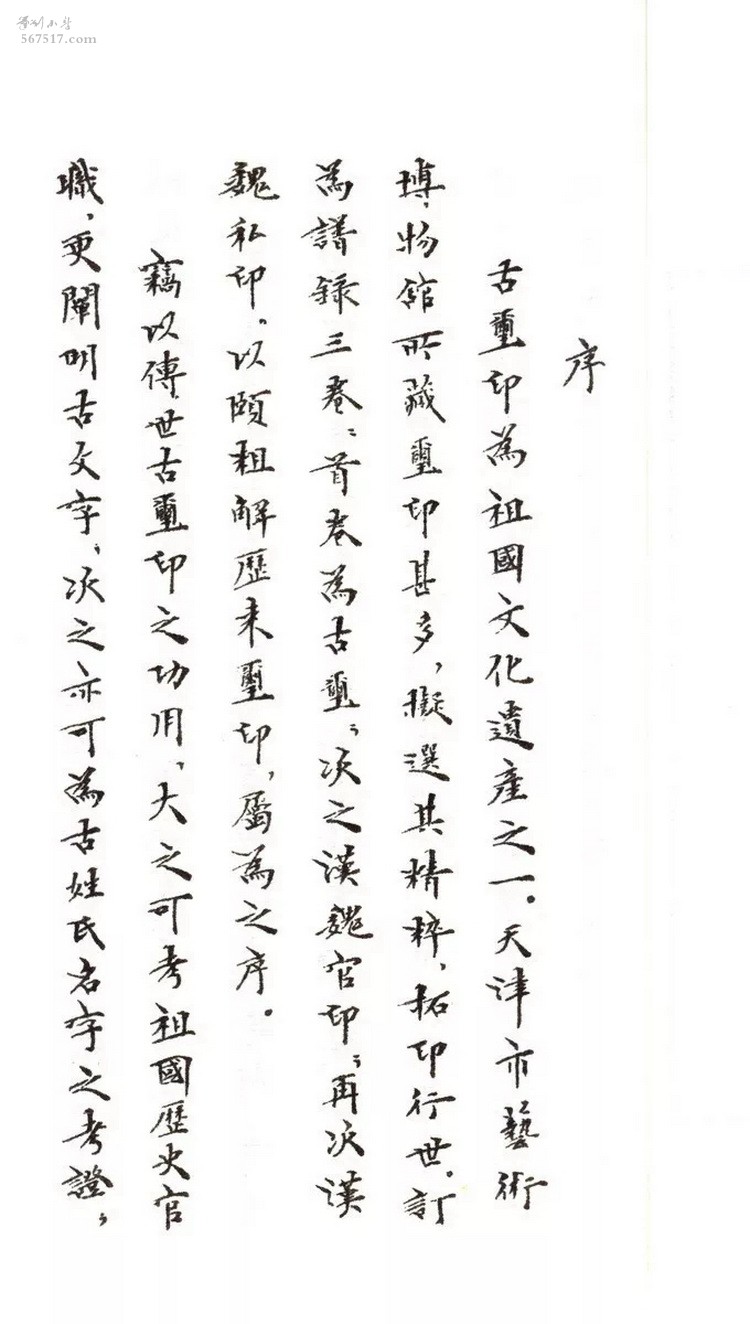 567517.com
序
古璽印為祖國文化遺產之一。天津市藝術
博物館所藏璽印甚多，擬選其精粹，拓印行世。訂
為譜錄三卷：首卷為古璽；次之漢魏官印；再次漢
魏私印。以頤粗解歷來璽印，屬為之序。
竊以傳世古璽印之功用，大之可考祖國歷史官
職，更闡明古文字；次之亦可為古姓氏名字之考證，